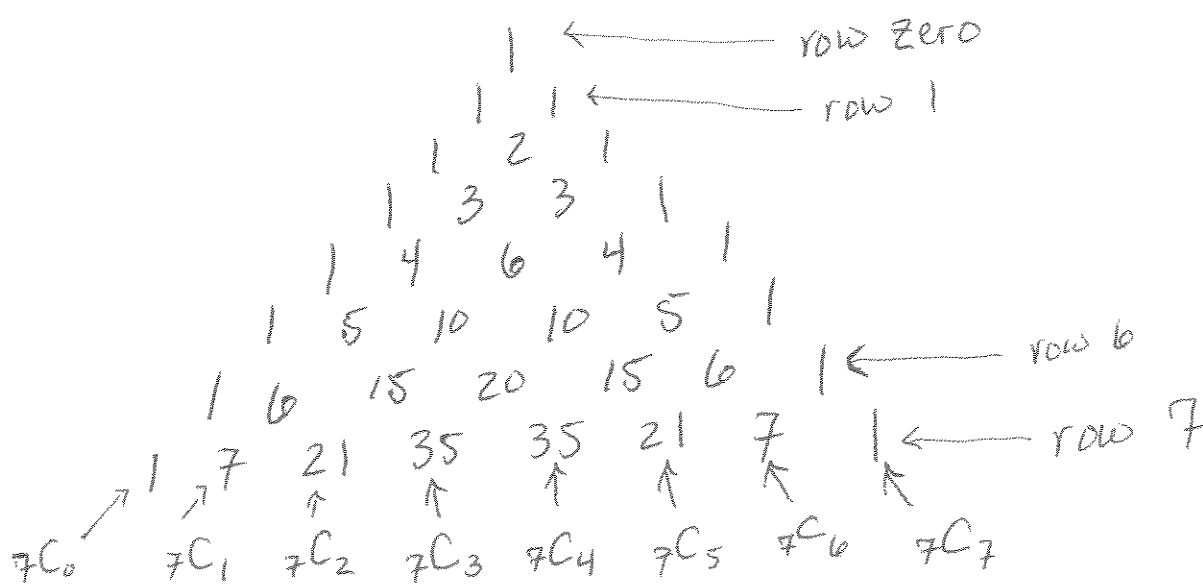 1 ← row zero
1 1 ← row 1
1 2 1
1 3 3 1
1 4 6 4 1
1 5 10 10 5 1
1 6 15 20 15 6 1 ← row 6
1 7 21 35 35 21 7 1 ← row 7
₇C₀ ₇C₁ ₇C₂ ₇C₃ ₇C₄ ₇C₅ ₇C₆ ₇C₇